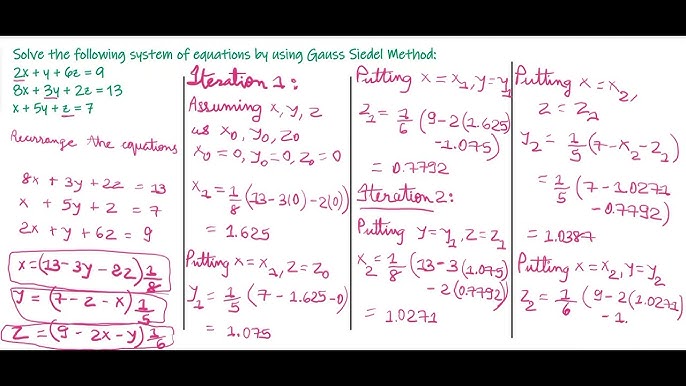 Solve the following system of equations by using Gauss Siedel Method:
2x + y + 6z = 9
8x + 3y + 2z = 13
x + 5y + z = 7
Rearrange the equations
8x + 3y + 2z = 13
x + 5y + z = 7
2x + y + 6z = 9
x = (13 - 3y - 2z) 1/8
y = (7 - z - x) 1/5
z = (9 - 2x - y) 1/6
Iteration 1:
Assuming x, y, z
as x₀, y₀, z₀
x₀ = 0, y₀ = 0, z₀ = 0
x₁ = 1/8 (13 - 3(0) - 2(0))
= 1.625
Putting x = x₁, z = z₀
y₁ = 1/5 (7 - 1.625 - 0)
= 1.075
Putting x = x₁, y = y₁
z₁ = 1/6 (9 - 2(1.625)
- 1.075)
= 0.7792
Iteration 2:
Putting y = y₁, z = z₁
x₂ = 1/8 (13 - 3(1.075)
- 2(0.7792))
= 1.0271
Putting x = x₂,
z = z₁
y₂ = 1/5 (7 - x₂ - z₁)
= 1/5 (7 - 1.0271
- 0.7792)
= 1.0387
Putting x = x₂, y = y₂
z₂ = 1/6 (9 - 2(1.0271)
- 1.